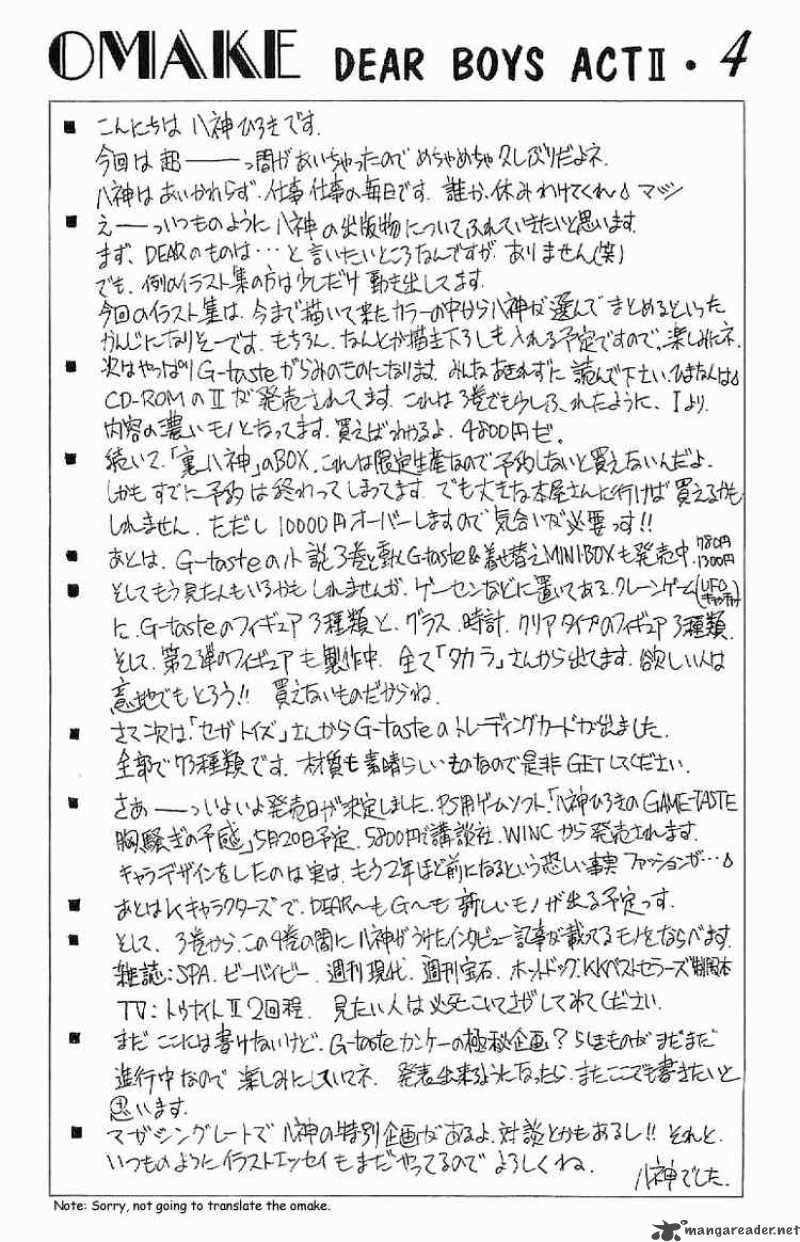 OMAKE DEAR BOYS ACTⅡ・4
■ こんにちは 八神ひろきです.
今回は超――っ間があいちゃったので めちゃめちゃ久しぶりだよネ.
八神はあいかわらず、仕事仕事の毎日です. 誰か、休みわけてくれ〜♪ マジ
■ え――っいつものように 八神の出版物についてふれていきたいと思います.
まず、DEARのものは…と言いたいところなんですが、ありません(笑)
でも、例のイラスト集の方は少しだけ 動き出してます.
今回のイラスト集は、今まで描いて来たカラーの中から八神が選んで まとめるといった
かんじになりそーです. もちろん、なんとか描き下ろしも入れる予定ですので、楽しみにネ.
■ 次はやっぱりG-tasteがらみのものになります. みんなあきれずに 読んで下さい.ひまな人は♪
CD-ROMのⅡが発売されてます. これは3巻でも少しふれたように、Ⅰより、
内容の濃いモノとなってます. 買えばわかるよ. 4800円ゼ。
■ 続いて、「裏八神」のBOX. これは限定生産なので予約しないと買えないんだよ.
しかもすでに予約は終わってしまってます. でも大きな本屋さんに行けば買えるかも
しれません. ただし10000円オーバーしますので気合いが必要っす!!
■ あとは、G-tasteの小説3巻と動くG-taste&着せ替えMINI・BOXも発売中. 780円 1300円
■ そしてもう見た人もいるかもしれませんが、ゲーセンなどに置いてある、クレーンゲーム(UFOキャッチャー)
に、G-tasteのフィギュア3種類と、グラス、時計、クリアタイプのフィギュア3種類、
そして、第2弾のフィギュアも製作中. 全て「タカラ」さんから出てます. 欲しい人は
意地でもとろう!! 買えないものだからね.
■ さて次は、「セガトイズ」さんからG-tasteのトレーディングカードが出ました.
全部で73種類です. 材質も素晴らしいものなので是非GETしてください.
■ さあ――っいよいよ発売日が決定しました. PS用ゲームソフト、「八神ひろきのGAME-TASTE
胸騒ぎの予感」5月20日予定. 5800円で講談社、WINCから発売されます.
キャラデザインをしたのは実は、もう2年ほど前になるという恐しい事実 ファッションが…♪
■ あとはKキャラクターズで、DEAR〜もG〜も新しいモノが出る予定っす.
■ そして、3巻から、この4巻の間に八神がうけたインタビュー記事が載ってるモノをならべます.
雑誌:SPA. ビーバイビー. 週刊現代. 週刊宝石. ホットドッグ. KKベストセラーズ
TV:トゥナイトⅡ 2回程. 見たい人は必死こいてさがしてみてください.
■ まだここには書けないけど、G-tasteカンケーの極秘企画?らしきものがまだまだ
進行中なので 楽しみにしていてネ. 発表出来るようになったら、またここでも書きたいと
思います.
■ マガジングレートで八神の特別企画があるよ.対談とかもあるし!! それと、
いつものようにイラストエッセイもまだやってるのでよろしくね.
八神でした.
Note: Sorry, not going to translate the omake.
mangareader.net